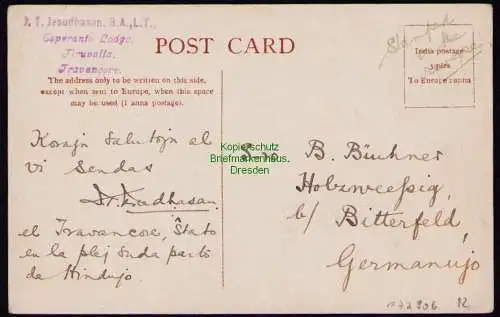 P. T. Jesudhasan, B.A., L.T.,
Esperanto Lodge,
Tiruvalla,
Travancore.
POST CARD
Stamped
on the
India postage
3 pies
To Europe 1 anna
The address only to be written on this side,
except when sent to Europe, when this space
may be used (1 anna postage).
Korajn Salutojn al
vi Sendas
Jesudhasan
el Travancore, Ŝtato
en la plej suda parto
da Hindujo
S-ro B. Büchner
Holzweeßig,
b/ Bitterfeld,
Germanujo
Kopierschutz
Briefmarkenhaus
Dresden
12